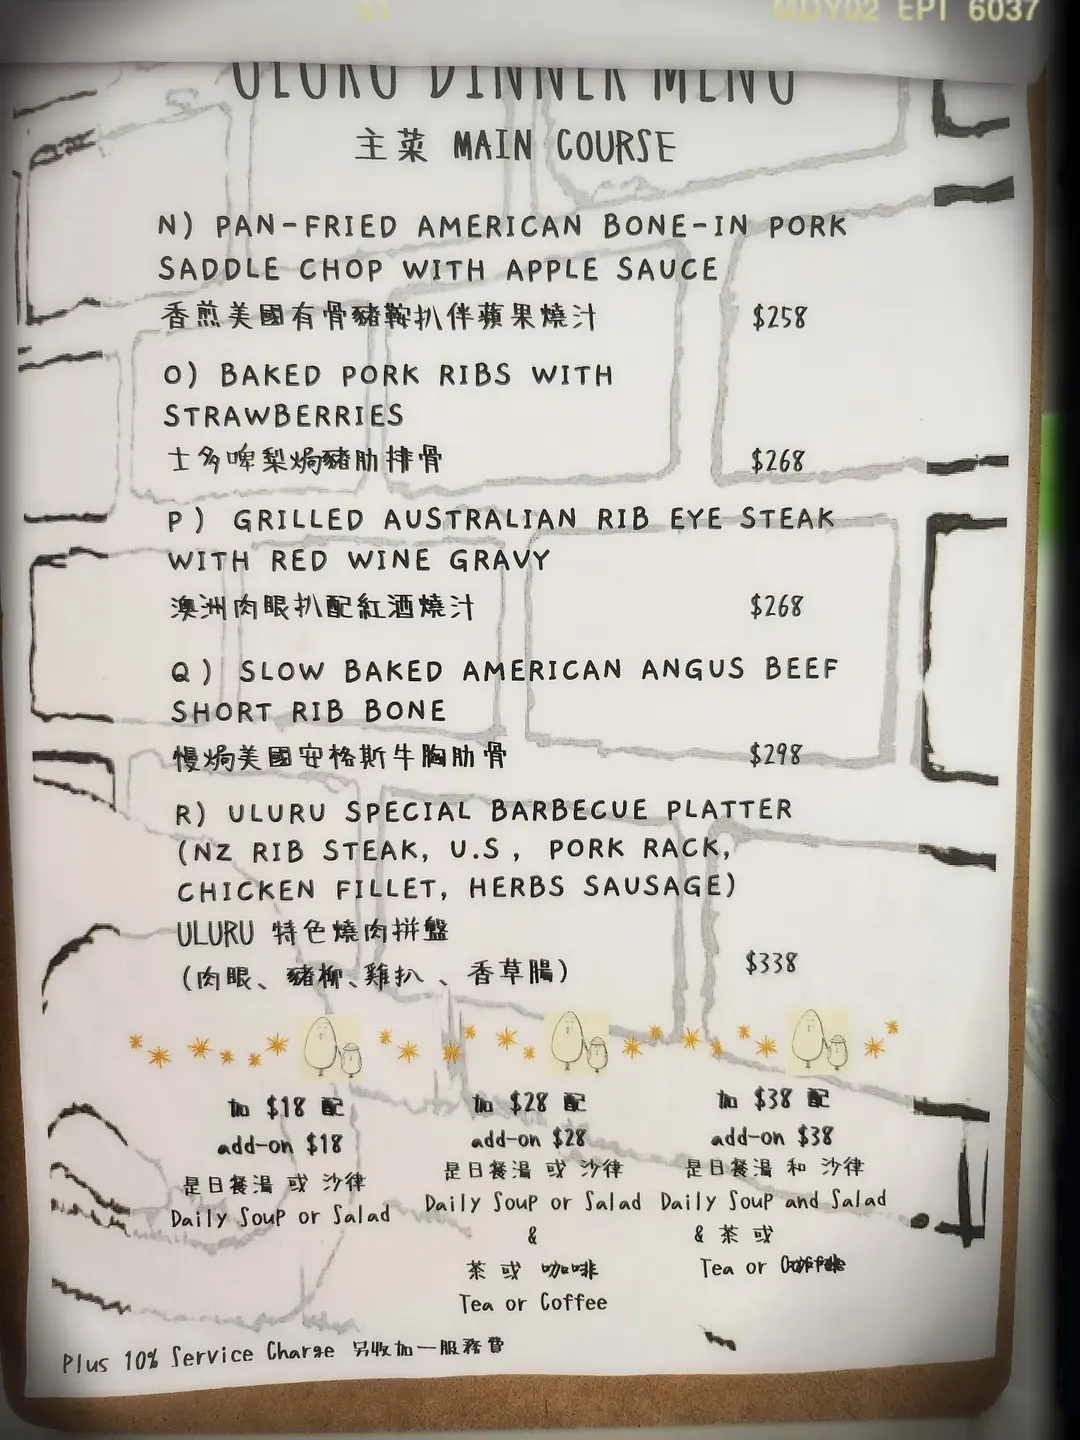 MDY02 EPI 6037
ULURU DINNER MENU
主菜 MAIN COURSE
N) PAN-FRIED AMERICAN BONE-IN PORK
SADDLE CHOP WITH APPLE SAUCE
香煎美國有骨豬鞍扒伴蘋果燒汁 $258
O) BAKED PORK RIBS WITH
STRAWBERRIES
士多啤梨焗豬肋排骨 $268
P) GRILLED AUSTRALIAN RIB EYE STEAK
WITH RED WINE GRAVY
澳洲肉眼扒配紅酒燒汁 $268
Q) SLOW BAKED AMERICAN ANGUS BEEF
SHORT RIB BONE
慢焗美國安格斯牛胸肋骨 $298
R) ULURU SPECIAL BARBECUE PLATTER
(NZ RIB STEAK, U.S, PORK RACK,
CHICKEN FILLET, HERBS SAUSAGE)
ULURU 特色燒肉拼盤
(肉眼、豬柳、雞扒、香草腸) $338
加 $18 配
add-on $18
是日餐湯 或 沙律
Daily Soup or Salad
加 $28 配
add-on $28
是日餐湯 或 沙律
Daily Soup or Salad
&
茶 或 咖啡
Tea or Coffee
加 $38 配
add-on $38
是日餐湯 和 沙律
Daily Soup and Salad
& 茶 或
Tea or
Plus 10% Service Charge 另收加一服務費